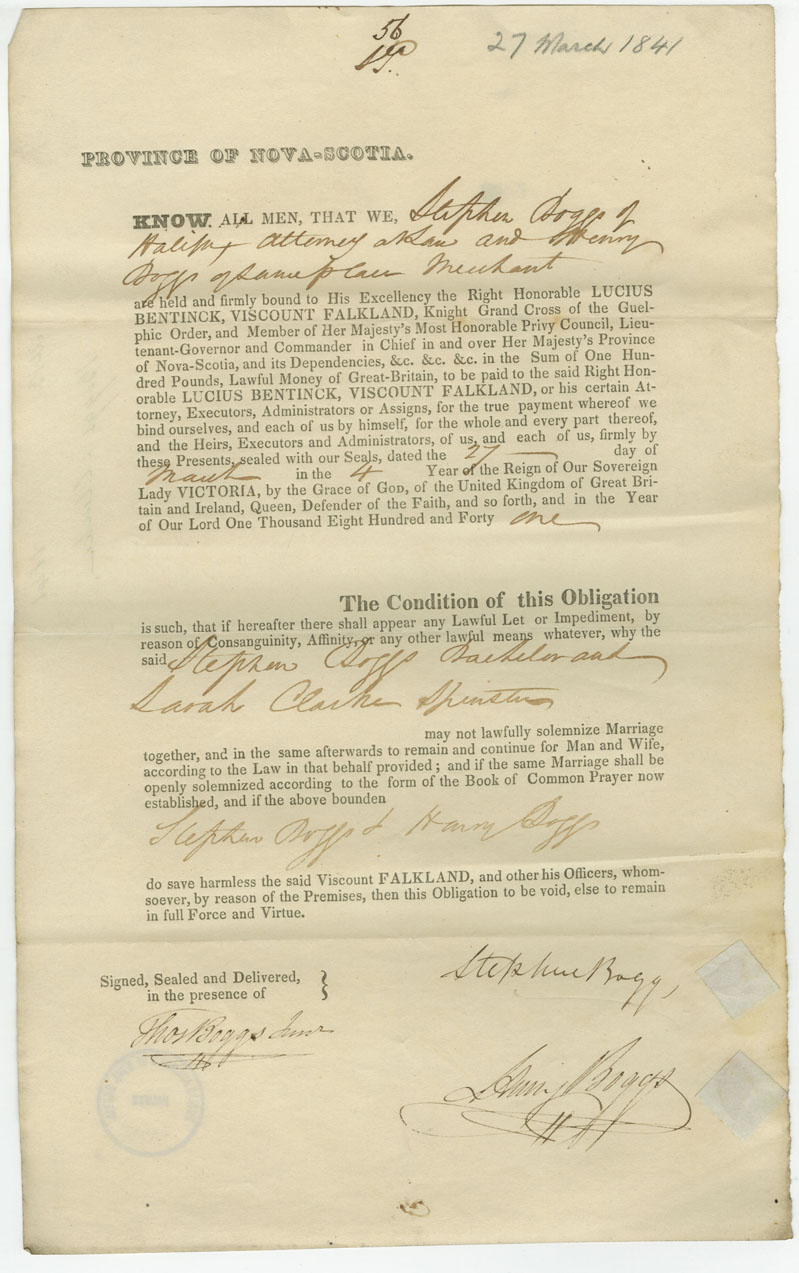 56
27 March 1841
PROVINCE OF NOVA-SCOTIA.
KNOW ALL MEN, THAT WE, Stephen Boggs of
Halifax Attorney at Law and Henry
Boggs of same place Merchant
are held and firmly bound to His Excellency the Right Honorable LUCIUS
BENTINCK, VISCOUNT FALKLAND, Knight Grand Cross of the Guel-
phic Order, and Member of Her Majesty's Most Honorable Privy Council, Lieu-
tenant-Governor and Commander in Chief in and over Her Majesty's Province
of Nova-Scotia, and its Dependencies, &c. &c. &c. in the Sum of One Hun-
dred Pounds, Lawful Money of Great-Britain, to be paid to the said Right Hon-
orable LUCIUS BENTINCK, VISCOUNT FALKLAND, or his certain At-
torney, Executors, Administrators or Assigns, for the true payment whereof we
bind ourselves, and each of us by himself, for the whole and every part thereof,
and the Heirs, Executors and Administrators, of us, and each of us, firmly by
these Presents, sealed with our Seals, dated the 27 day of
March in the 4 Year of the Reign of Our Sovereign
Lady VICTORIA, by the Grace of GOD, of the United Kingdom of Great Bri-
tain and Ireland, Queen, Defender of the Faith, and so forth, and in the Year
of Our Lord One Thousand Eight Hundred and Forty one
The Condition of this Obligation
is such, that if hereafter there shall appear any Lawful Let or Impediment, by
reason of Consanguinity, Affinity, or any other lawful means whatever, why the
said Stephen Boggs Bachelor and
Sarah Clarke Spinster
may not lawfully solemnize Marriage
together, and in the same afterwards to remain and continue for Man and Wife,
according to the Law in that behalf provided; and if the same Marriage shall be
openly solemnized according to the form of the Book of Common Prayer now
established, and if the above bounden
Stephen Boggs & Henry Boggs
do save harmless the said Viscount FALKLAND, and other his Officers, whom-
soever, by reason of the Premises, then this Obligation to be void, else to remain
in full Force and Virtue.
Signed, Sealed and Delivered,
in the presence of
Thos Boggs Junr
Stephen Boggs
Henry Boggs